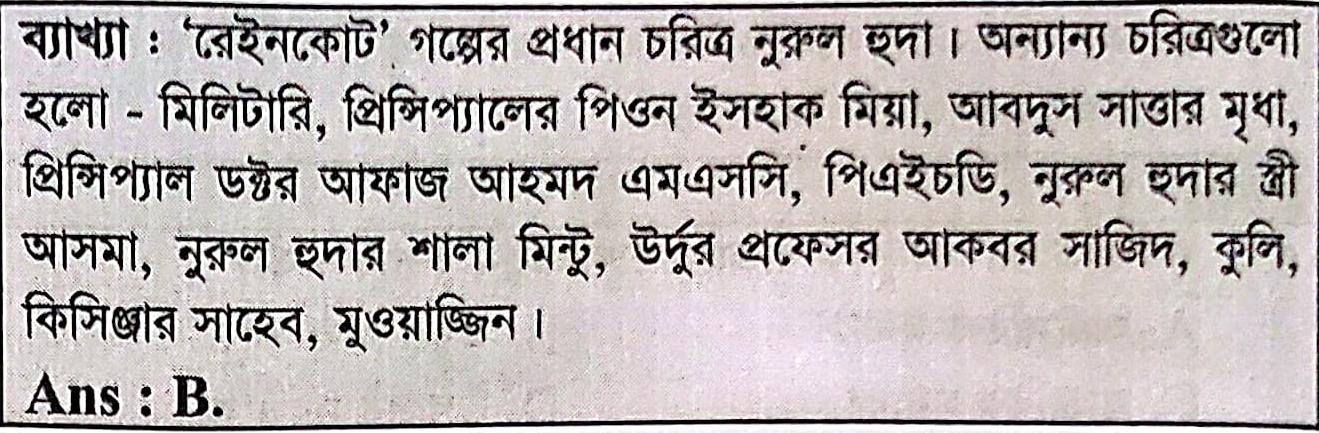 ব্যাখ্যা : ‘রেইনকোট’ গল্পের প্রধান চরিত্র নুরুল হুদা। অন্যান্য চরিত্রগুলো
হলো - মিলিটারি, প্রিন্সিপ্যালের পিওন ইসহাক মিয়া, আবদুস সাত্তার মৃধা,
প্রিন্সিপ্যাল ডক্টর আফাজ আহমদ এমএসসি, পিএইচডি, নুরুল হুদার স্ত্রী
আসমা, নুরুল হুদার শালা মিন্টু, উর্দুর প্রফেসর আকবর সাজিদ, কুলি,
কিসিঞ্জার সাহেব, মুওয়াজ্জিন।
Ans : B.